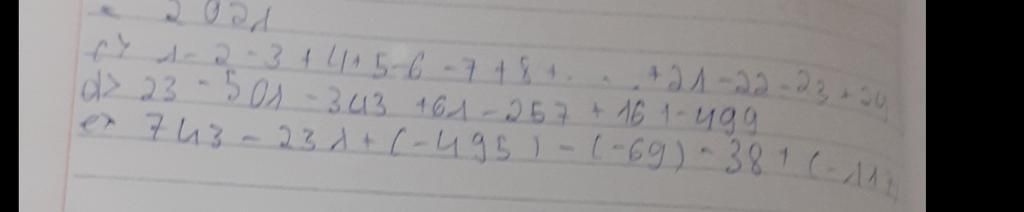 = 2021
c> 1-2-3+4+5-6-7+8+...+21-22-23+24
d> 23-501-343+61-257+16+-499
e> 743-231+(-495)-(-69)-38+(-11)